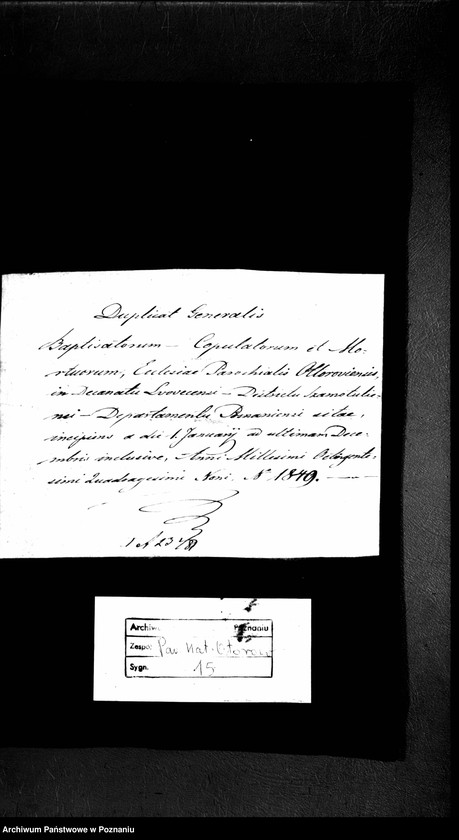 Duplicat Generalis
Baptisatorum – Copulatorum et Mo-
rtuorum, Ecclesiae Parochialis Ottoroviensis,
in Decanatu Lvovecensi – Districtu Szamotulie-
nsi – Departamentu Posnaniensi sitae,
incipiens a die 1. Januarij ad ultimam Dece-
mbris inclusive, Anni Millesimi Octingente-
simi Quadragesimi Noni. N° 1849.
Archiw Poznaniu
Zespół Par. Kat. Otorowo
Sygn. 15
Archiwum Państwowe w Poznaniu